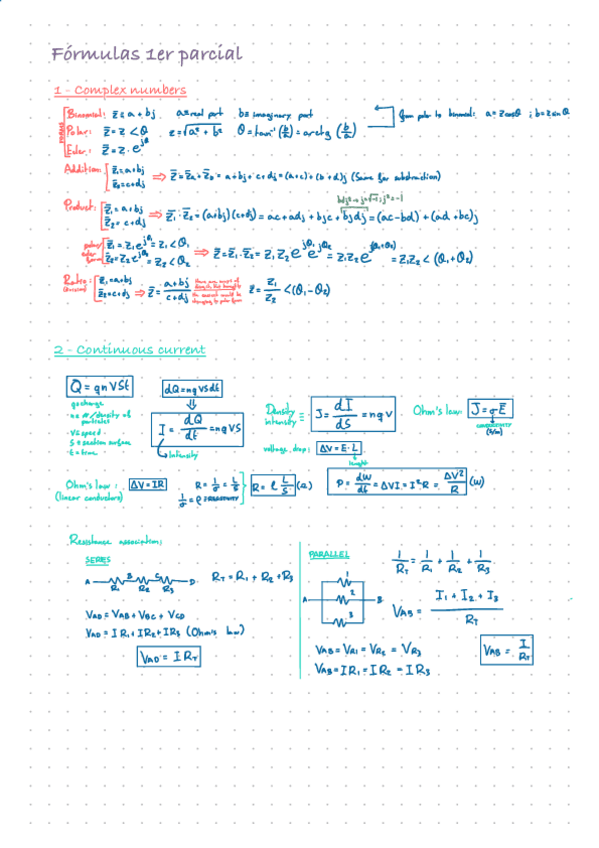 Fórmulas 1er parcial
1 - Complex numbers
Binomial: z̄ = a + bj   a = real part   b = imaginary part   from polar to binomial: a = z cosθ ; b = z sinθ
Polar: z̄ = z < θ   z = √(a² + b²)   θ = tan⁻¹ (b/a) = arctg (b/a)
Euler: z̄ = z · e^jθ
Addition: z̄₁ = a + bj
z̄₂ = c + dj ⇒ z̄ = z̄₁ + z̄₂ = a + bj + c + dj = (a+c) + (b+d)j (Same for substraction)
Product: z̄₁ = a + bj
z̄₂ = c + dj ⇒ z̄₁ · z̄₂ = (a+bj)(c+dj) = ac + adj + bjc + bjdj = (ac - bd) + (ad + bc)j
polar
euler
form z̄₁ = z₁ e^jθ₁ = z₁ < θ₁
z̄₂ = z₂ e^jθ₂ = z₂ < θ₂ ⇒ z̄ = z̄₁ · z̄₂ = z₁ z₂ e^jθ₁ e^jθ₂ = z₁ z₂ e^j(θ₁+θ₂) = z₁ z₂ < (θ₁ + θ₂)
Ratio: z̄₁ = a + bj
(division) z̄₂ = c + dj ⇒ z̄ = (a + bj)/(c + dj)   z̄ = z₁/z₂ < (θ₁ - θ₂)
2 - Continuous current
Q = qnVSt
q = charge
n = nº/density of
particles
V = speed
S = section surface
t = time
dQ = nqVSdt
⇓
I = dQ/dt = nqVS
Intensity
Density
intensity ≡ J = dI/dS = nqv
Ohm's law: J = σE
conductivity
(S/m)
voltage drop: ΔV = E · L
lenght
Ohm's law:
(linear conductors) ΔV = IR
1/σ = ρ RESISTIVITY
P = dW/dt = ΔVI = I²R = ΔV²/R (W)
Resistance association:
SERIES
A B C D
R₁ R₂ R₃
R_T = R₁ + R₂ + R₃
V_AD = V_AB + V_BC + V_CD
V_AD = IR₁ + IR₂ + IR₃ (Ohm's law)
V_AD = I R_T
PARALLEL
1/R_T = 1/R₁ + 1/R₂ + 1/R₃
A 1 2 3 B
V_AB = (I₁ + I₂ + I₃)/R_T
V_AB = V_R1 = V_R2 = V_R3
V_AB = IR₁ = IR₂ = IR₃
V_AB = I/R_T